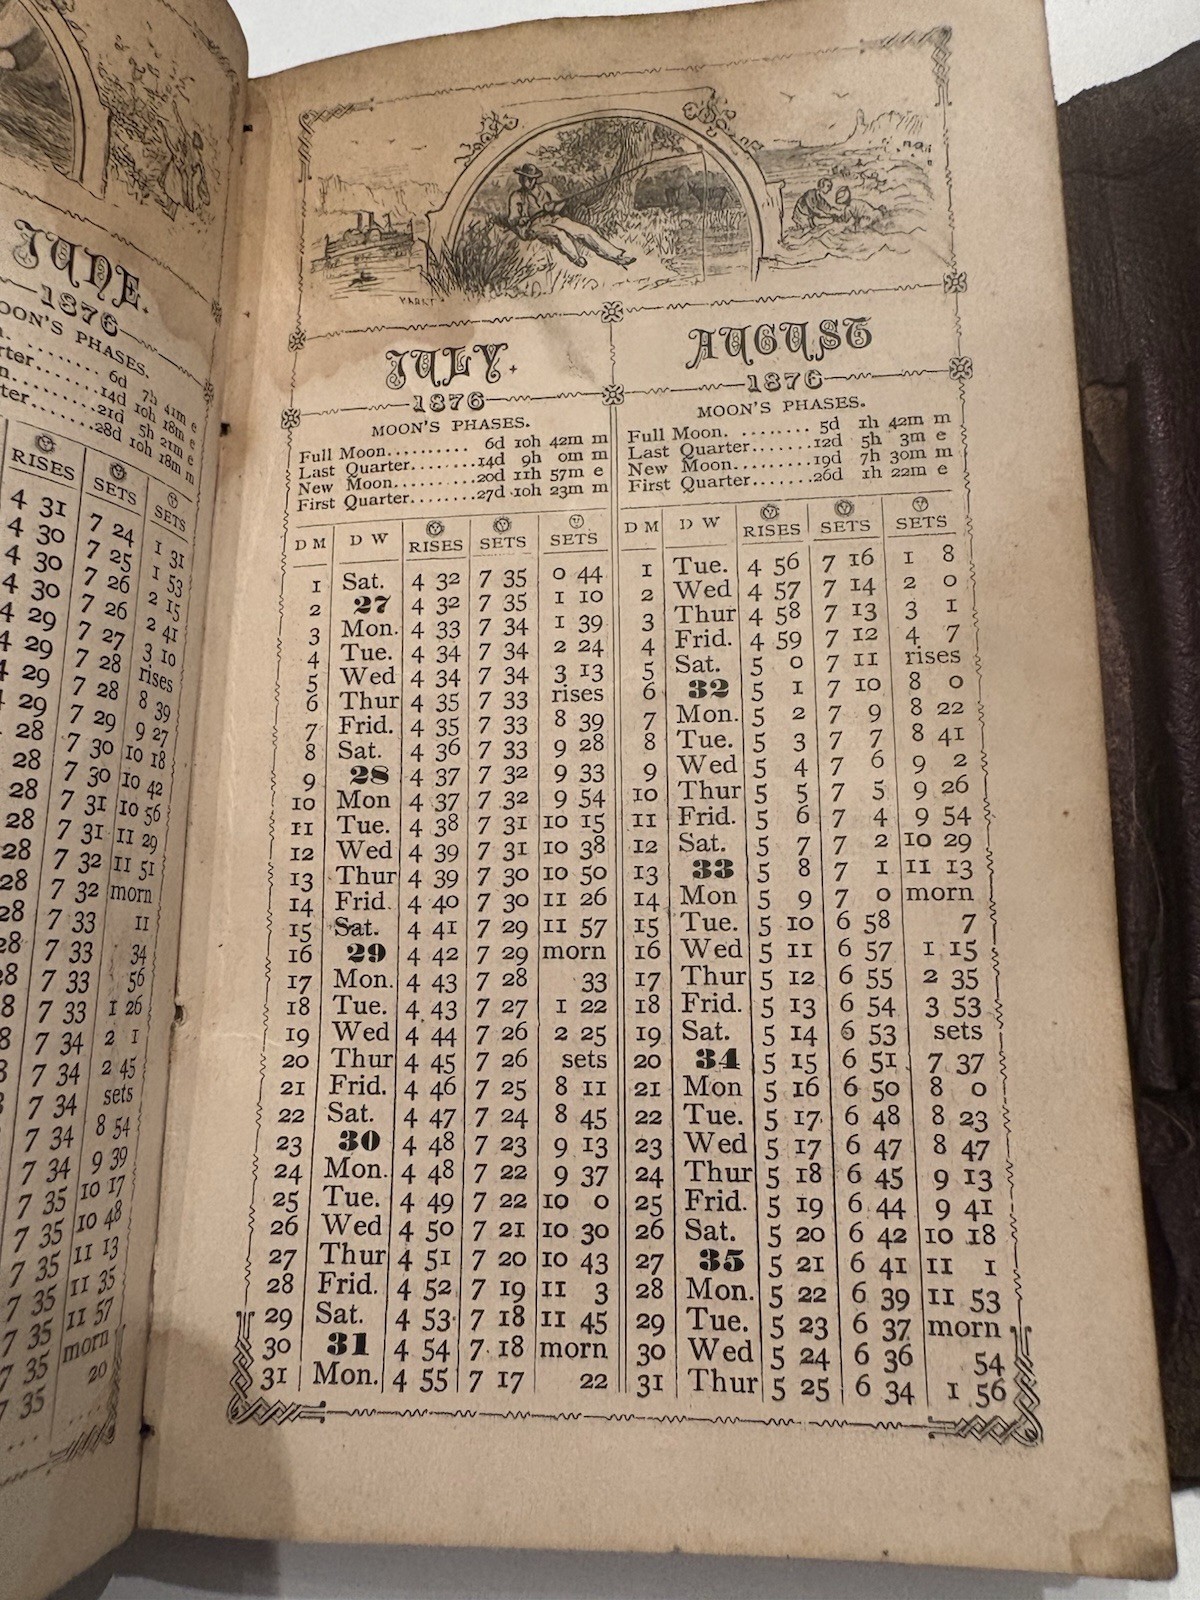 JUNE.
1876
MOON'S PHASES.
6d 7h 41m e
14d 10h 18m e
21d 5h 21m e
28d 10h 18m m
RISES SETS SETS
4 31 7 24 1 31
4 30 7 25 1 53
4 30 7 26 2 15
4 30 7 26 2 41
4 29 7 27 3 10
4 29 7 28 rises
4 29 7 28 8 39
4 29 7 29 9 27
28 7 30 10 18
28 7 30 10 42
28 7 31 10 56
28 7 31 11 29
28 7 32 11 51
28 7 32 morn
28 7 33 11
28 7 33 34
28 7 33 56
8 7 33 1 26
8 7 34 2 1
7 34 2 45
7 34 sets
7 34 8 54
7 34 9 39
7 35 10 17
7 35 10 48
7 35 11 13
7 35 11 35
7 35 11 57
7 35 morn
7 35 20
JULY.
1876
MOON'S PHASES.
Full Moon.......... 6d 10h 42m m
Last Quarter.......14d 9h 0m m
New Moon.........20d 11h 57m e
First Quarter........27d 10h 23m m
D M D W RISES SETS SETS
1 Sat. 4 32 7 35 0 44
2 27 4 32 7 35 1 10
3 Mon. 4 33 7 34 1 39
4 Tue. 4 34 7 34 2 24
5 Wed 4 34 7 34 3 13
6 Thur 4 35 7 33 rises
7 Frid. 4 35 7 33 8 39
8 Sat. 4 36 7 33 9 28
9 28 4 37 7 32 9 33
10 Mon 4 37 7 32 9 54
11 Tue. 4 38 7 31 10 15
12 Wed 4 39 7 31 10 38
13 Thur 4 39 7 30 10 50
14 Frid. 4 40 7 30 11 26
15 Sat. 4 41 7 29 11 57
16 29 4 42 7 29 morn
17 Mon. 4 43 7 28 33
18 Tue. 4 43 7 27 1 22
19 Wed 4 44 7 26 2 25
20 Thur 4 45 7 26 sets
21 Frid. 4 46 7 25 8 11
22 Sat. 4 47 7 24 8 45
23 30 4 48 7 23 9 13
24 Mon. 4 48 7 22 9 37
25 Tue. 4 49 7 22 10 0
26 Wed 4 50 7 21 10 30
27 Thur 4 51 7 20 10 43
28 Frid. 4 52 7 19 11 3
29 Sat. 4 53 7 18 11 45
30 31 4 54 7 18 morn
31 Mon. 4 55 7 17 22
AUGUST
1876
MOON'S PHASES.
Full Moon. ........ 5d 1h 42m m
Last Quarter:.......12d 5h 3m e
New Moon..........19d 7h 30m m
First Quarter.......26d 1h 22m e
D M D W RISES SETS SETS
1 Tue. 4 56 7 16 1 8
2 Wed 4 57 7 14 2 0
3 Thur 4 58 7 13 3 1
4 Frid. 4 59 7 12 4 7
5 Sat. 5 0 7 11 rises
6 32 5 1 7 10 8 0
7 Mon. 5 2 7 9 8 22
8 Tue. 5 3 7 7 8 41
9 Wed 5 4 7 6 9 2
10 Thur 5 5 7 5 9 26
11 Frid. 5 6 7 4 9 54
12 Sat. 5 7 7 2 10 29
13 33 5 8 7 1 11 13
14 Mon 5 9 7 0 morn
15 Tue. 5 10 6 58 7
16 Wed 5 11 6 57 1 15
17 Thur 5 12 6 55 2 35
18 Frid. 5 13 6 54 3 53
19 Sat. 5 14 6 53 sets
20 34 5 15 6 51 7 37
21 Mon 5 16 6 50 8 0
22 Tue. 5 17 6 48 8 23
23 Wed 5 17 6 47 8 47
24 Thur 5 18 6 45 9 13
25 Frid. 5 19 6 44 9 41
26 Sat. 5 20 6 42 10 18
27 35 5 21 6 41 11 1
28 Mon. 5 22 6 39 11 53
29 Tue. 5 23 6 37 morn
30 Wed 5 24 6 36 54
31 Thur 5 25 6 34 1 56